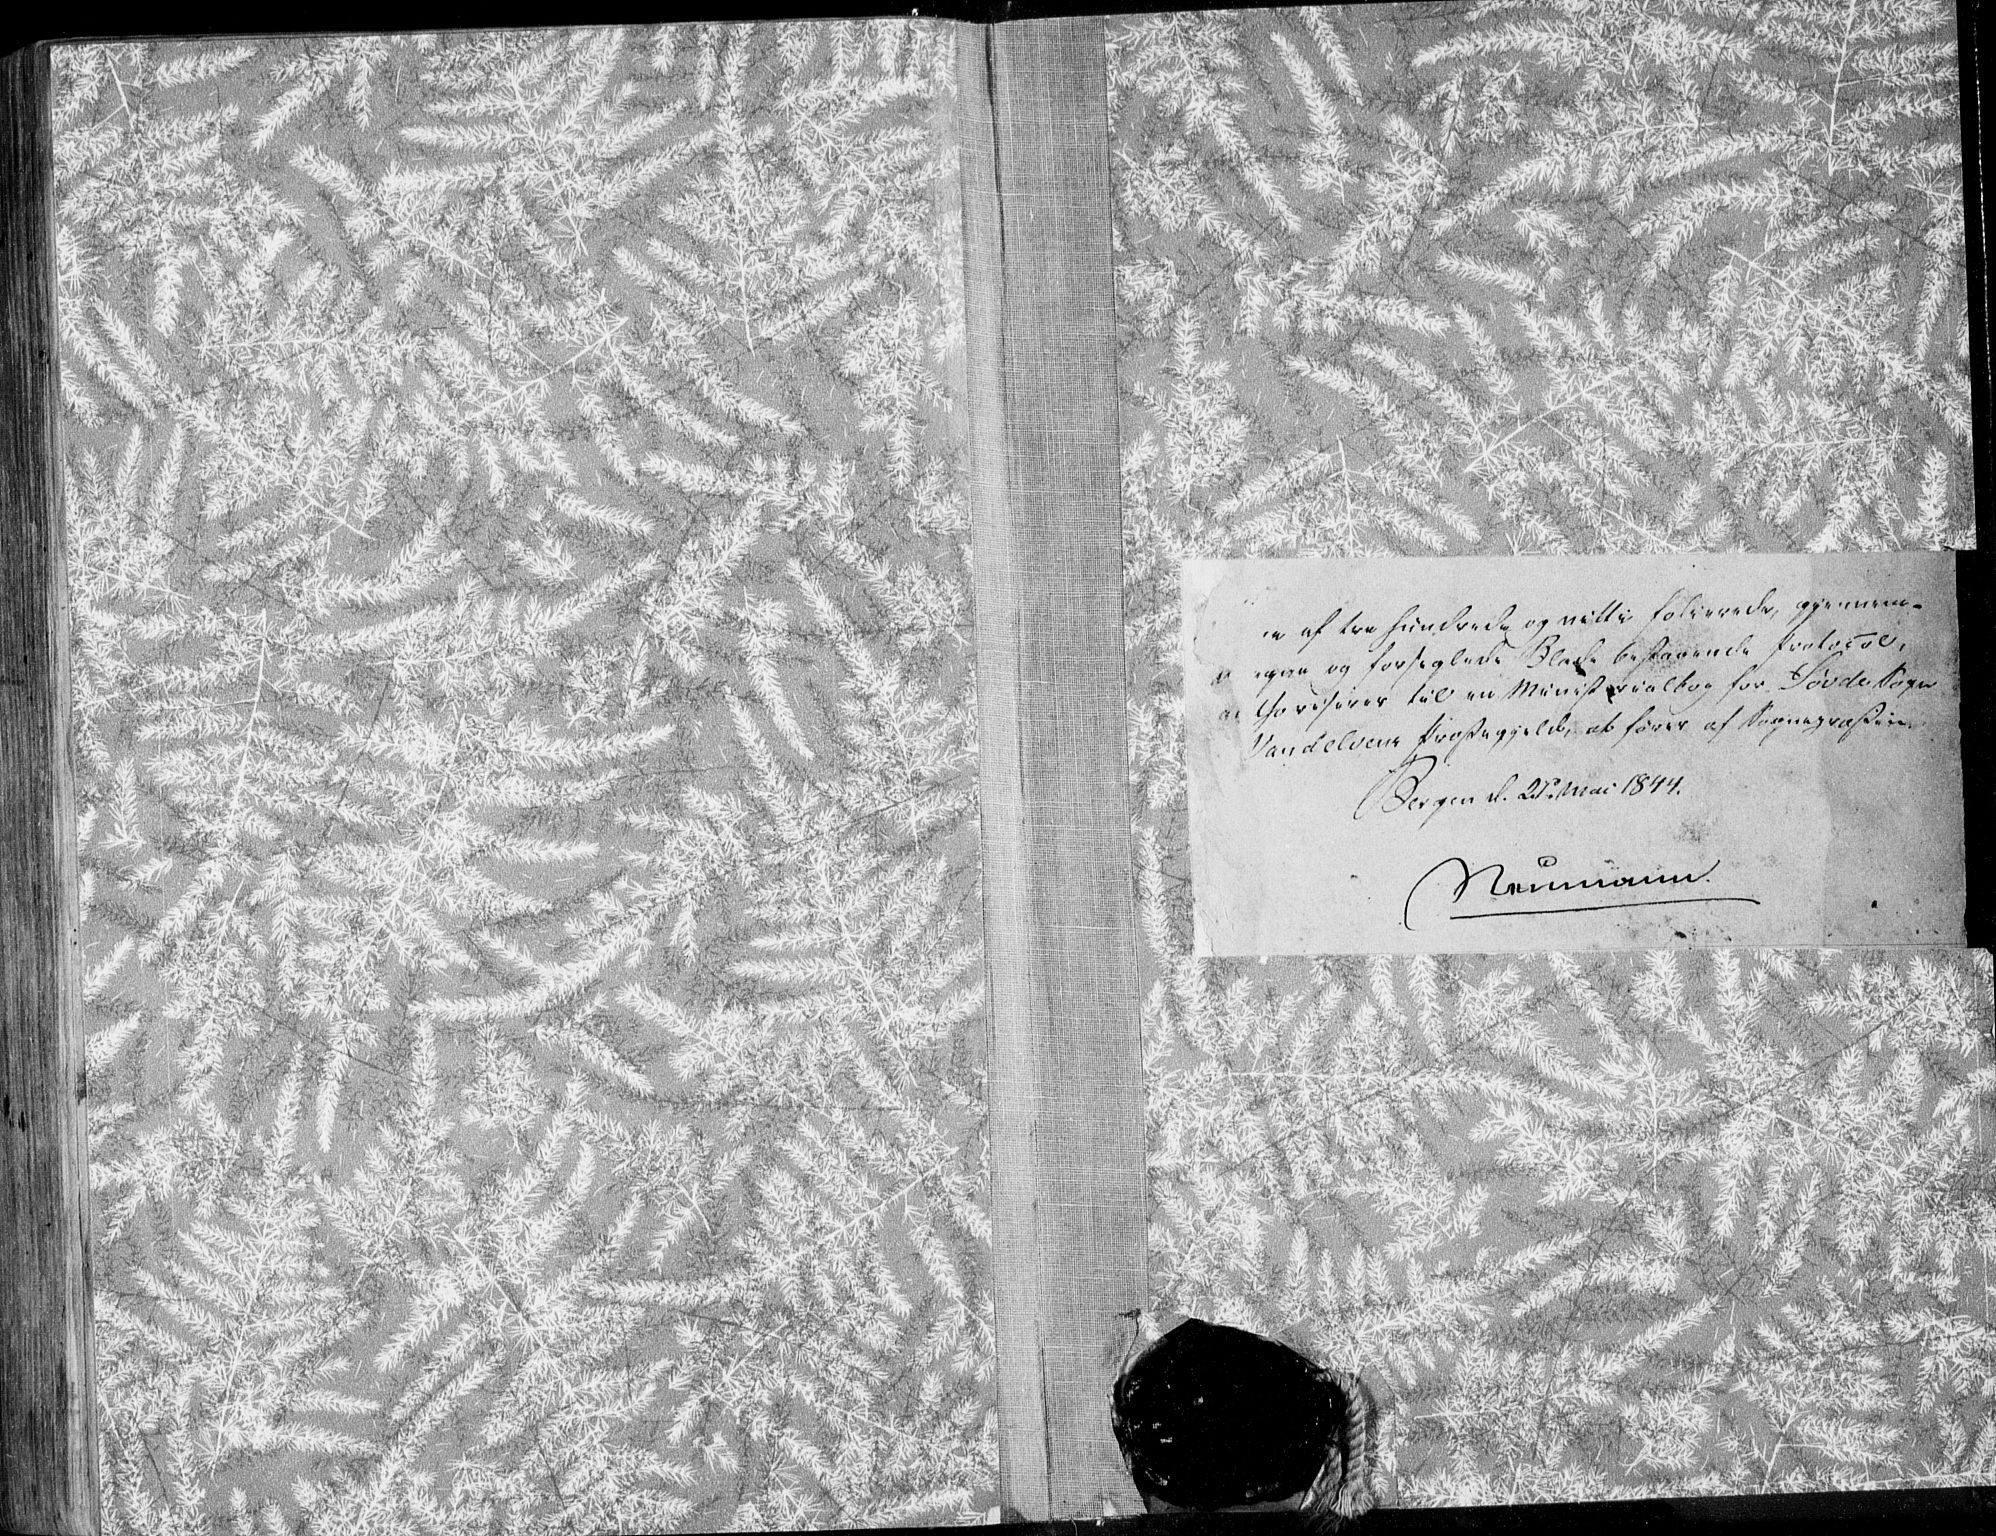 af tre hundrede og nitti folierede, gjennem-
og forseglede Blade bestaaende Protocol,
thoriseres til en Ministerialbog for Søvde Sogn
Vandelvens Præstegjeld, at føres af Sognepræsten.
Bergen d. 25. Mai 1844.
Neumann.